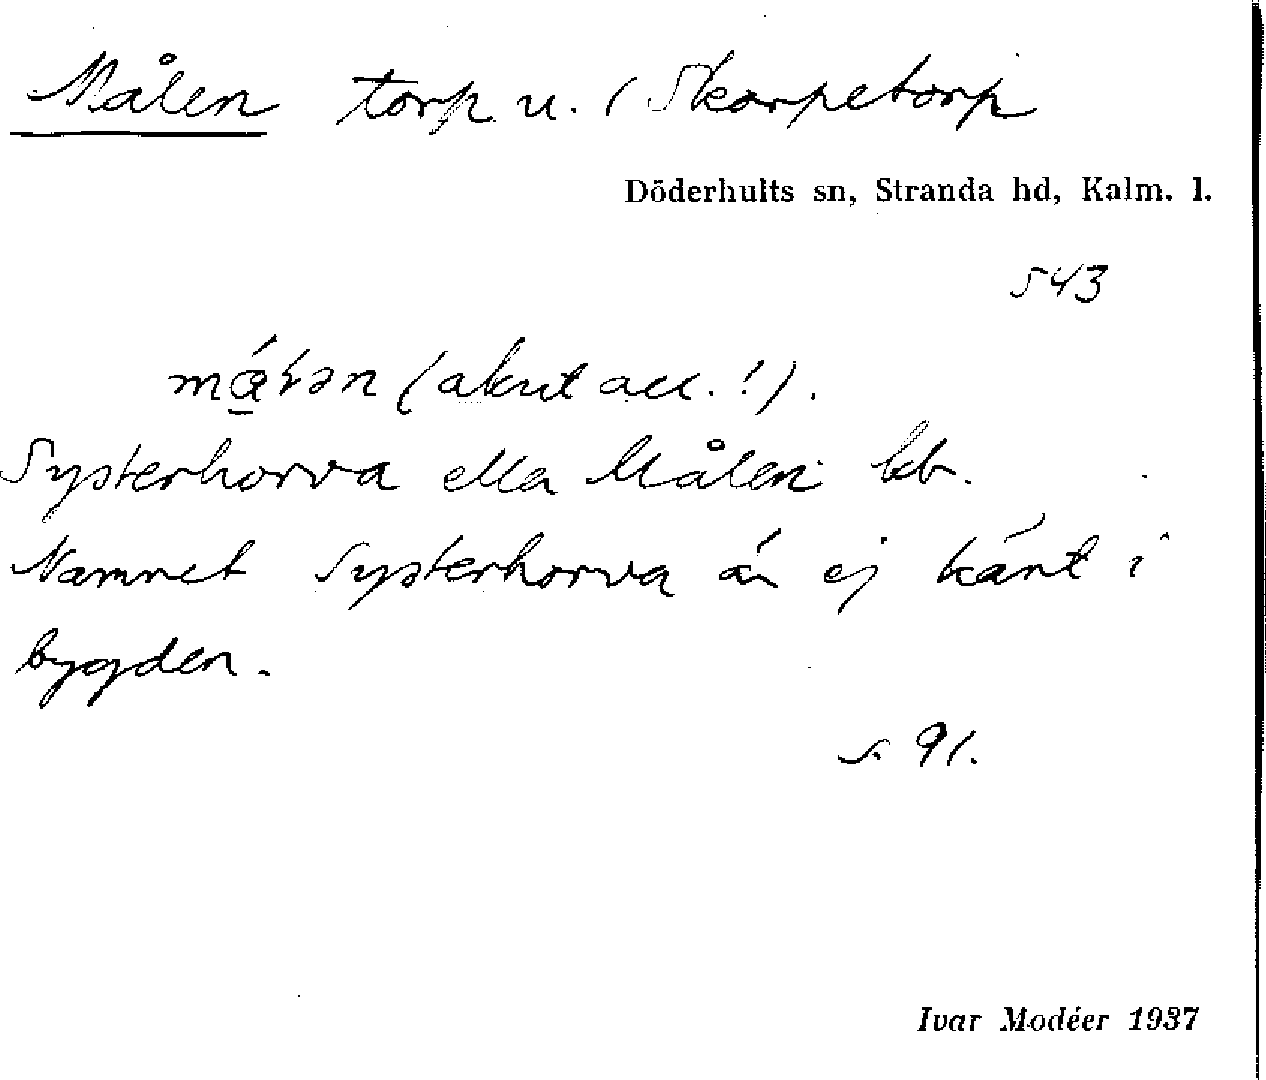 Målen torp u. 1 Skorpetorp
Döderhults sn, Stranda hd, Kalm. l.
543
(akut acc.!).
Systerhorva ella Målen kb.
Namnet Systerhorva är ej känt i
bygden.
s. 91.
Ivar Modéer 1937